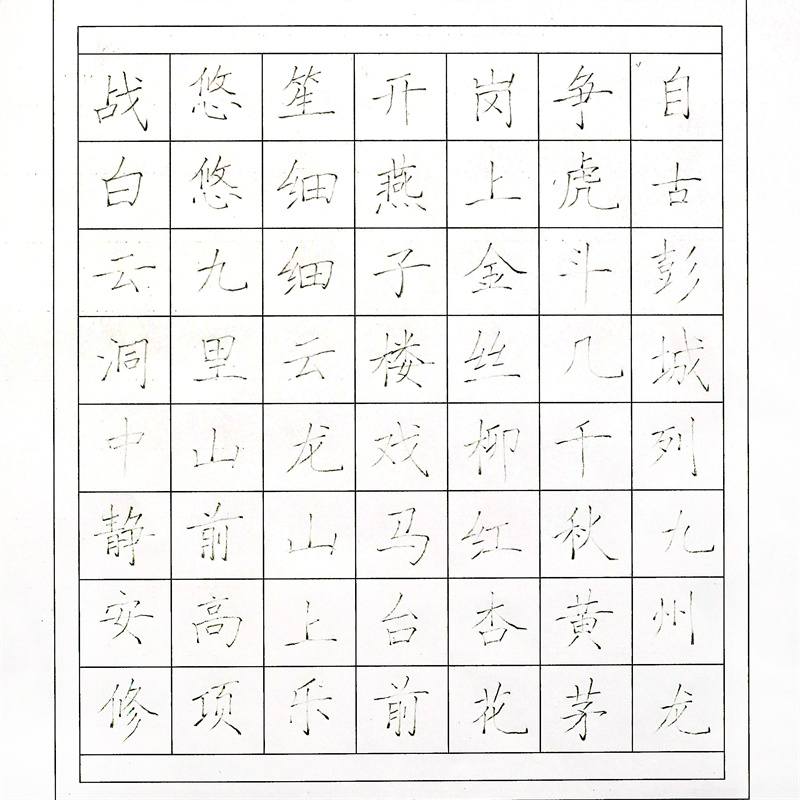 自古彭城列九州龙
争虎斗几千秋黄茅
岗上金丝柳红杏花
开燕子楼戏马台前
笙细细云龙山上乐
悠悠九里山前高项
战白云洞中静安修